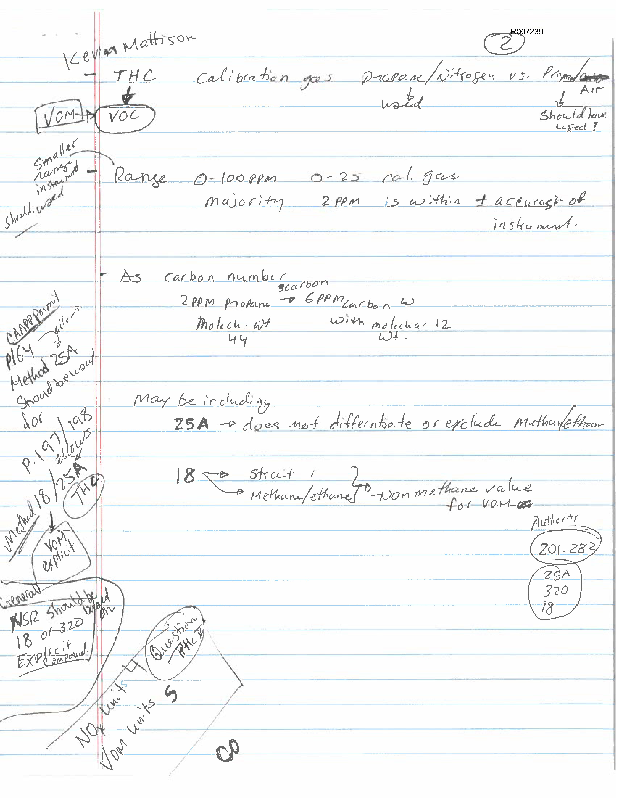 R007239
2
Kevin Mattison
- THC calibration gas propane/Nitrogen vs. Air
used
should have used?
VOM
VOC
smaller range instrument should used
- Range 0-100ppm 0-25 cal. gas
majority 2ppm is within ± accuracy of
instrument.
- As carbon number
3carbon
2ppm propane → 6ppm carbon w
Molec. wt with molecular 12
44 wt.
CAAPP Permit
P164
Method 25A
Should be used
for
P. 197/198
allows
Method 18/25A
THC
VOM explicit
May be including
25A → does not differntiate or exclude Methane/ethane
18 → Strait 1
→ Methane/ethane → Nonmethane value
for VOM
Authority
201.282
25A
320
18
General
NSR should be based on
18 or 320
Explicit compound.
NOx unit 4
Question PHC II
VOM units 5
CO